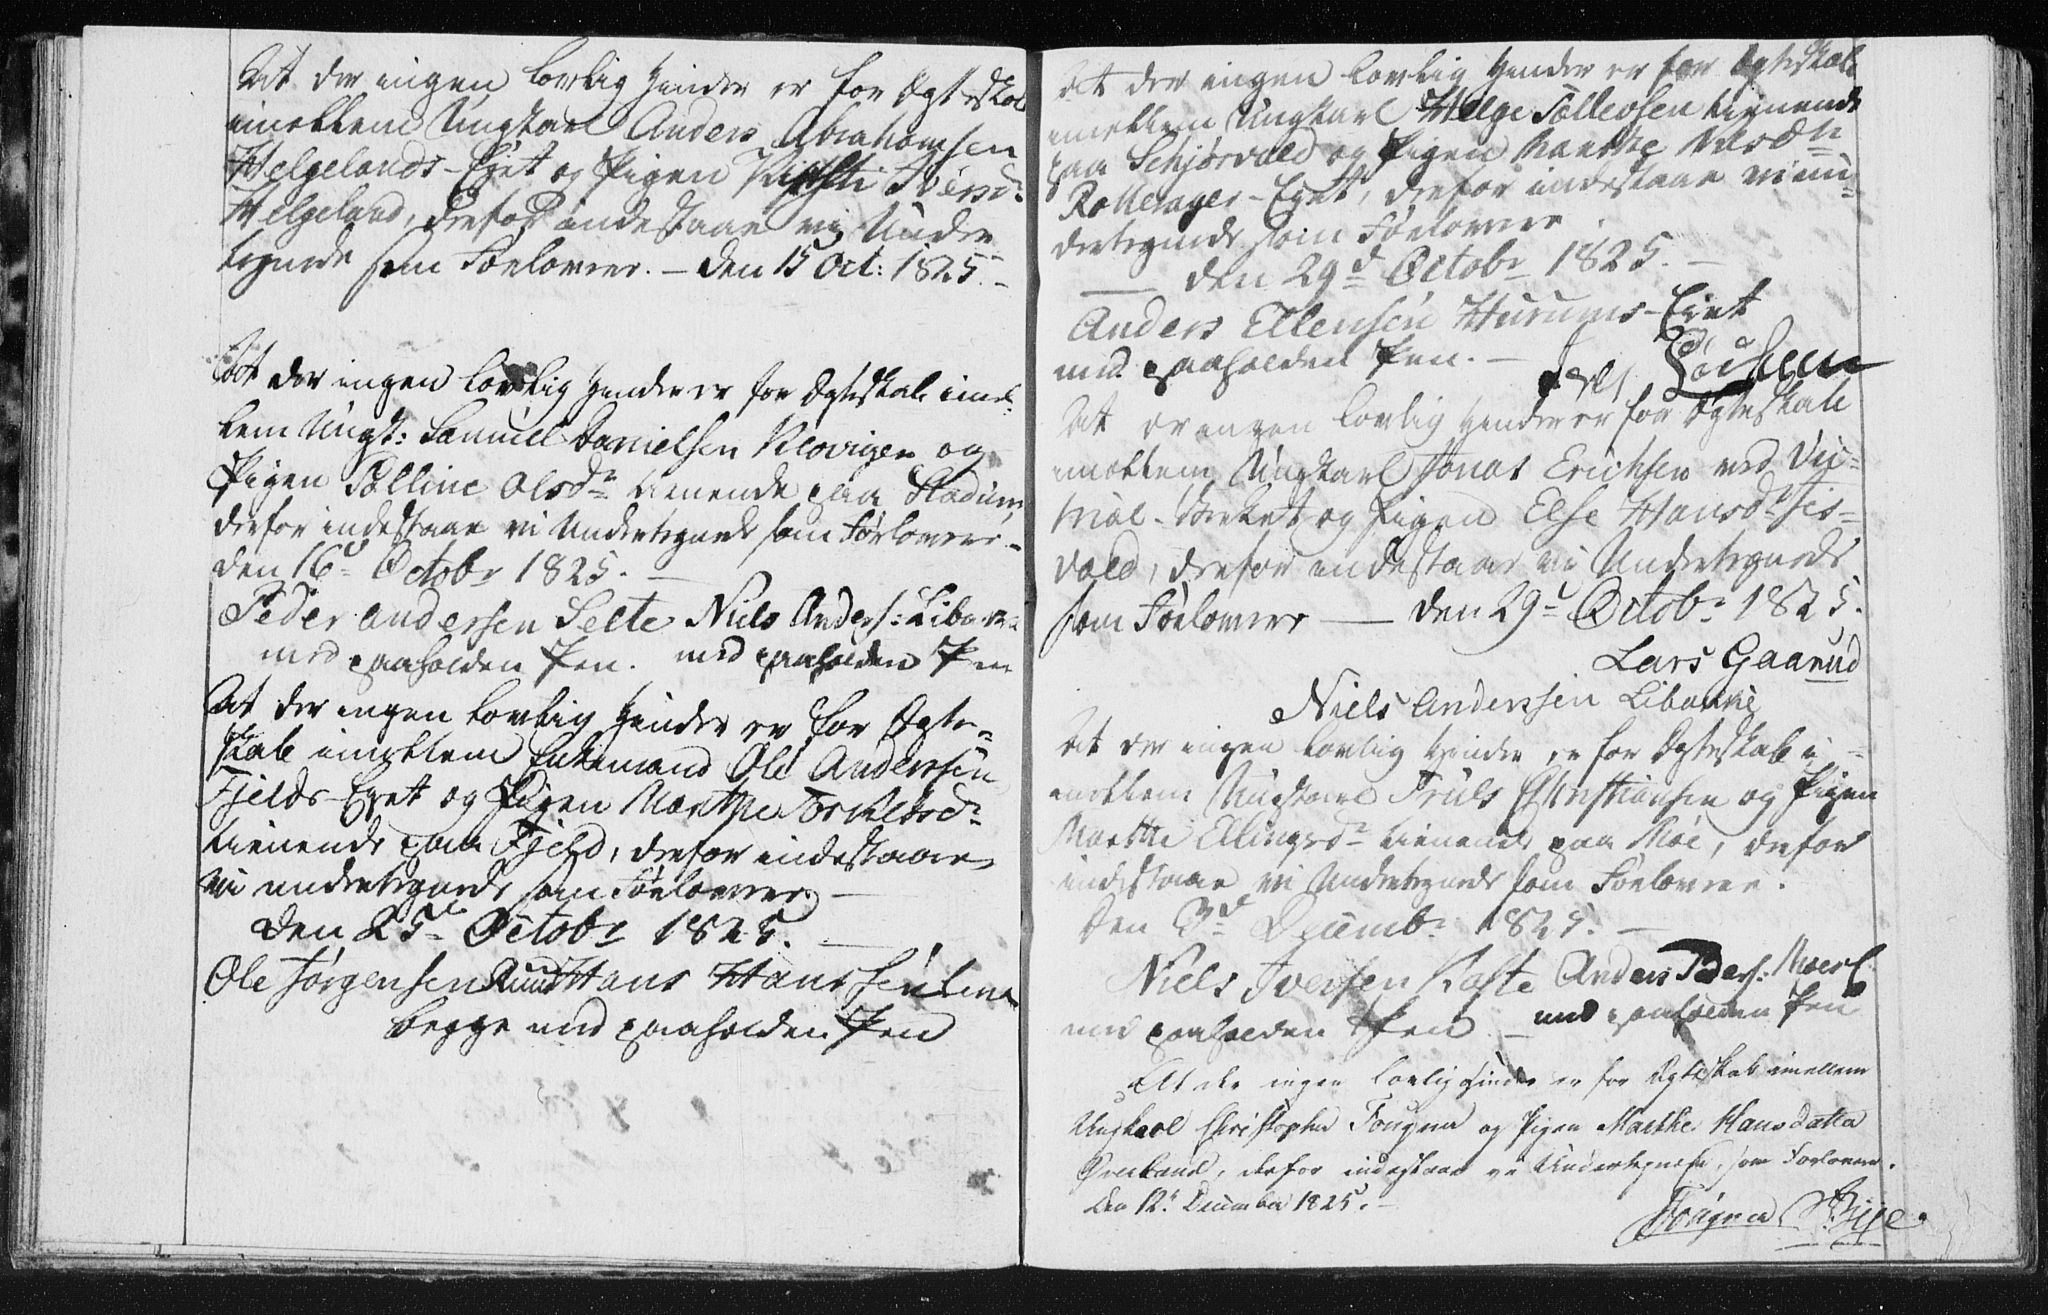 At der ingen lovlig Hinder er for Ægteskab
imellem Ungkarl Anders Abrahamsen
Helgelands-Eyet og Pigen Kirsti Iversd:
Helgeland, derfor indestaae vi Under
tegnede som Forlovere. – den 15 Oct: 1825. –
At der ingen lovlig Hinder er for Ægteskab imel-
lem Ungk: Samuel Danielsen Klovigen og
Pigen Pålline Olsdr tienende paa Stadum
derfor indestaae vi Undertegnede som Forlovere. –
den 16d Octobr 1825. –
Peder Andersen Selte Niels Anders:
med paaholden Pen. med paaholden Pen
At der ingen lovlig Hinder er for Ægte-
skab imellem Enkemand Ole Andersen
Fjelds-Eyet og Pigen Marthe Torkelsdr
tienende paa Fjeld, derfor indestaae
vi undertegnede som Forlovere. –
den 25d Octobr 1825. –
Ole Jørgensen Ruud Hans Hansen
begge med paaholden Pen
At der ingen lovlig Hinder er for Ægteskab
imellem Ungkarl Helge Tollevsen tienende
paa Schjørvold og Pigen Marthe Olsdtr
Rollerager-Eyet, derfor indestaae vi un-
dertegnede som Forlovere
— den 29d Octobr 1825. –
Anders Ellensen Hurums-Eyet
med paaholden Pen. –
At der ingen lovlig Hinder er for Ægteskab
imellem Ungkarl Jonas Erichsen ved Vii-
og Pigen Else Hansdr Sis-
vold, derfor indestaae vi Undertegnede
som Forlovere — den 29d Octobr 1825.
Lars Gaarud
Niels Anderssen
At der ingen lovlig Hinder er for Ægteskab i-
mellem Ungkarl Truls Christiansen og Pigen
Marthe Ellingsdr tienende paa Moe, derfor
indestaae vi Undertegnede som Forlovere.
Den 3d Decembr 1825. –
Niels Iversen Anders Peders:
med paaholden Pen. – med paaholden Pen
At der ingen lovlig Hinder er for Ægteskab imellem
Ungkarl Christopher Fougner og Pigen Marthe Hansdatter
Øverland, derfor indestaae vi Undertegnede, som Forlovere.
Den 12t December 1825. –
Fougner